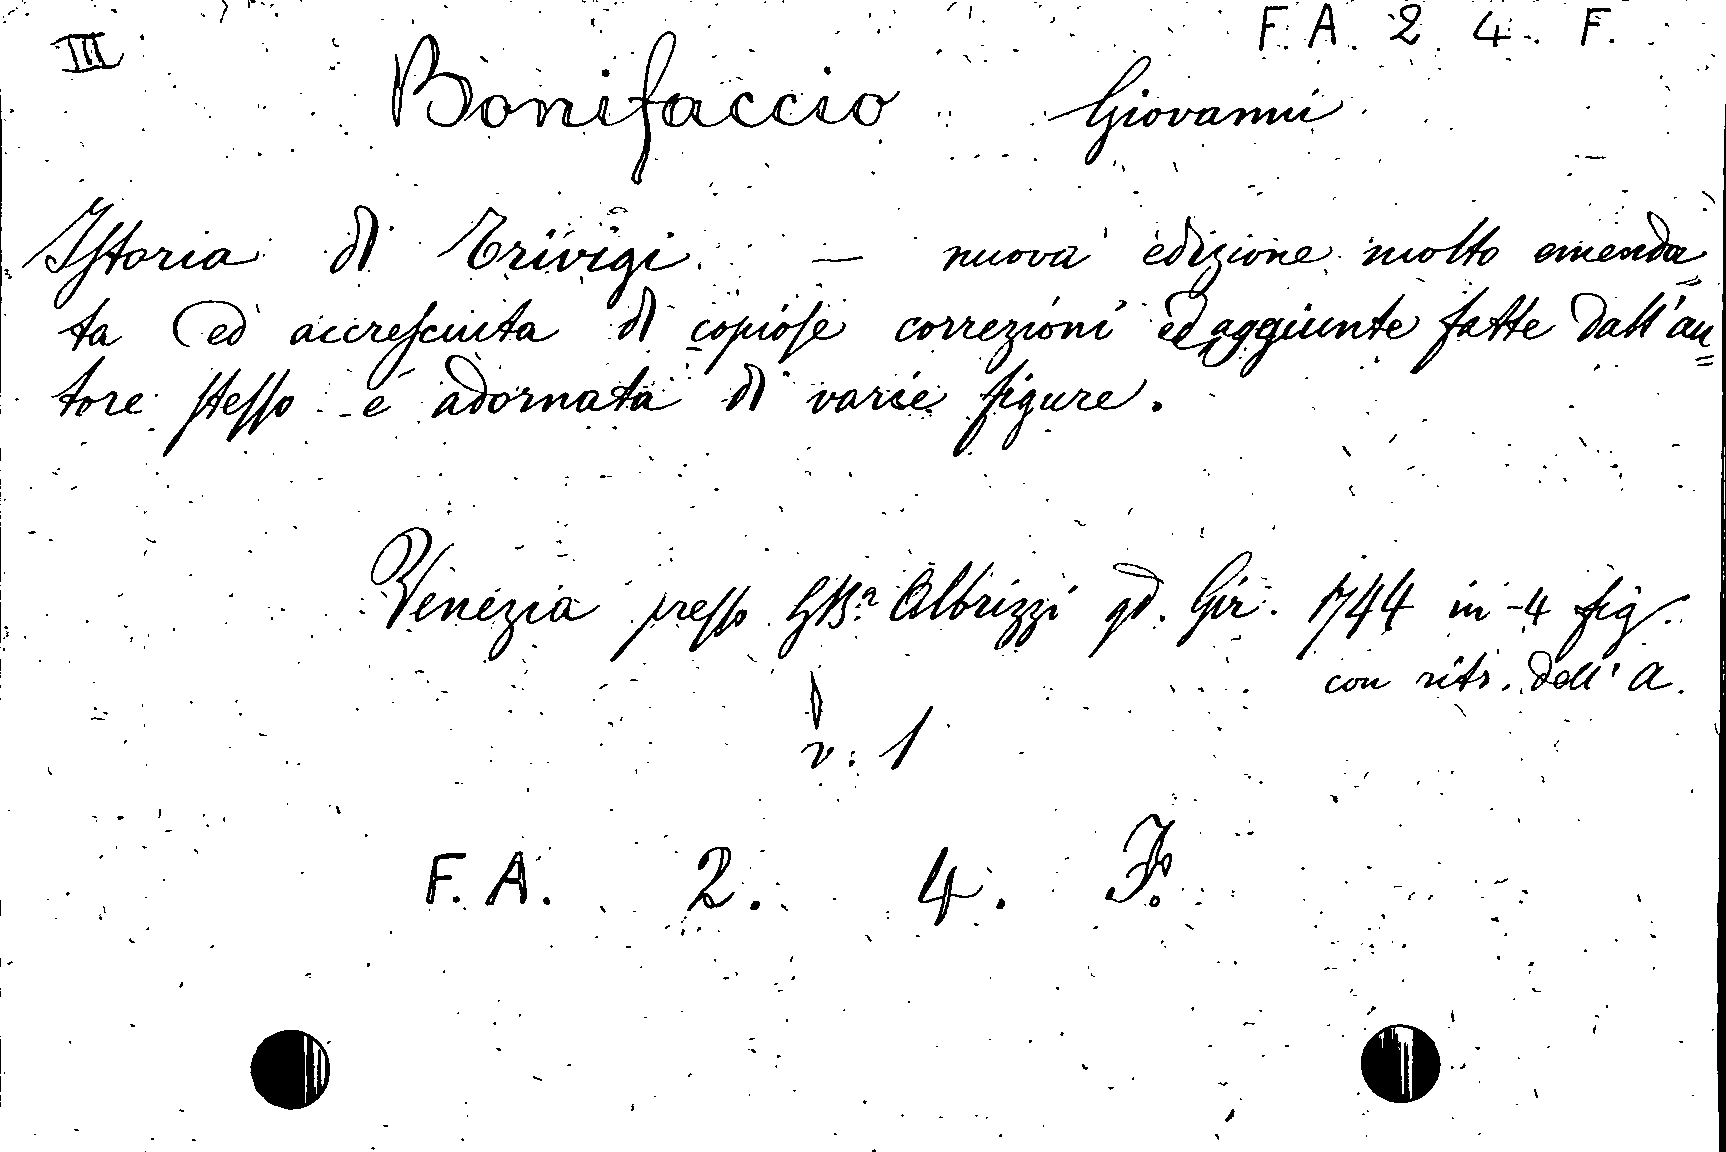 III F. A. 2 4. F.
Bonifaccio Giovanni
Istoria di Trivigi — nuova edizione molto emenda=
ta ed accresciuta di copiose correzioni ed aggiunte fatte dall'au=
tore stesso e adornata di varie figure.
Venezia presso GBa. Albrizzi qd. Gir. 1744 in-4 fig.
con ritr. dell' A.
v. 1
F. A. 2. 4. F.